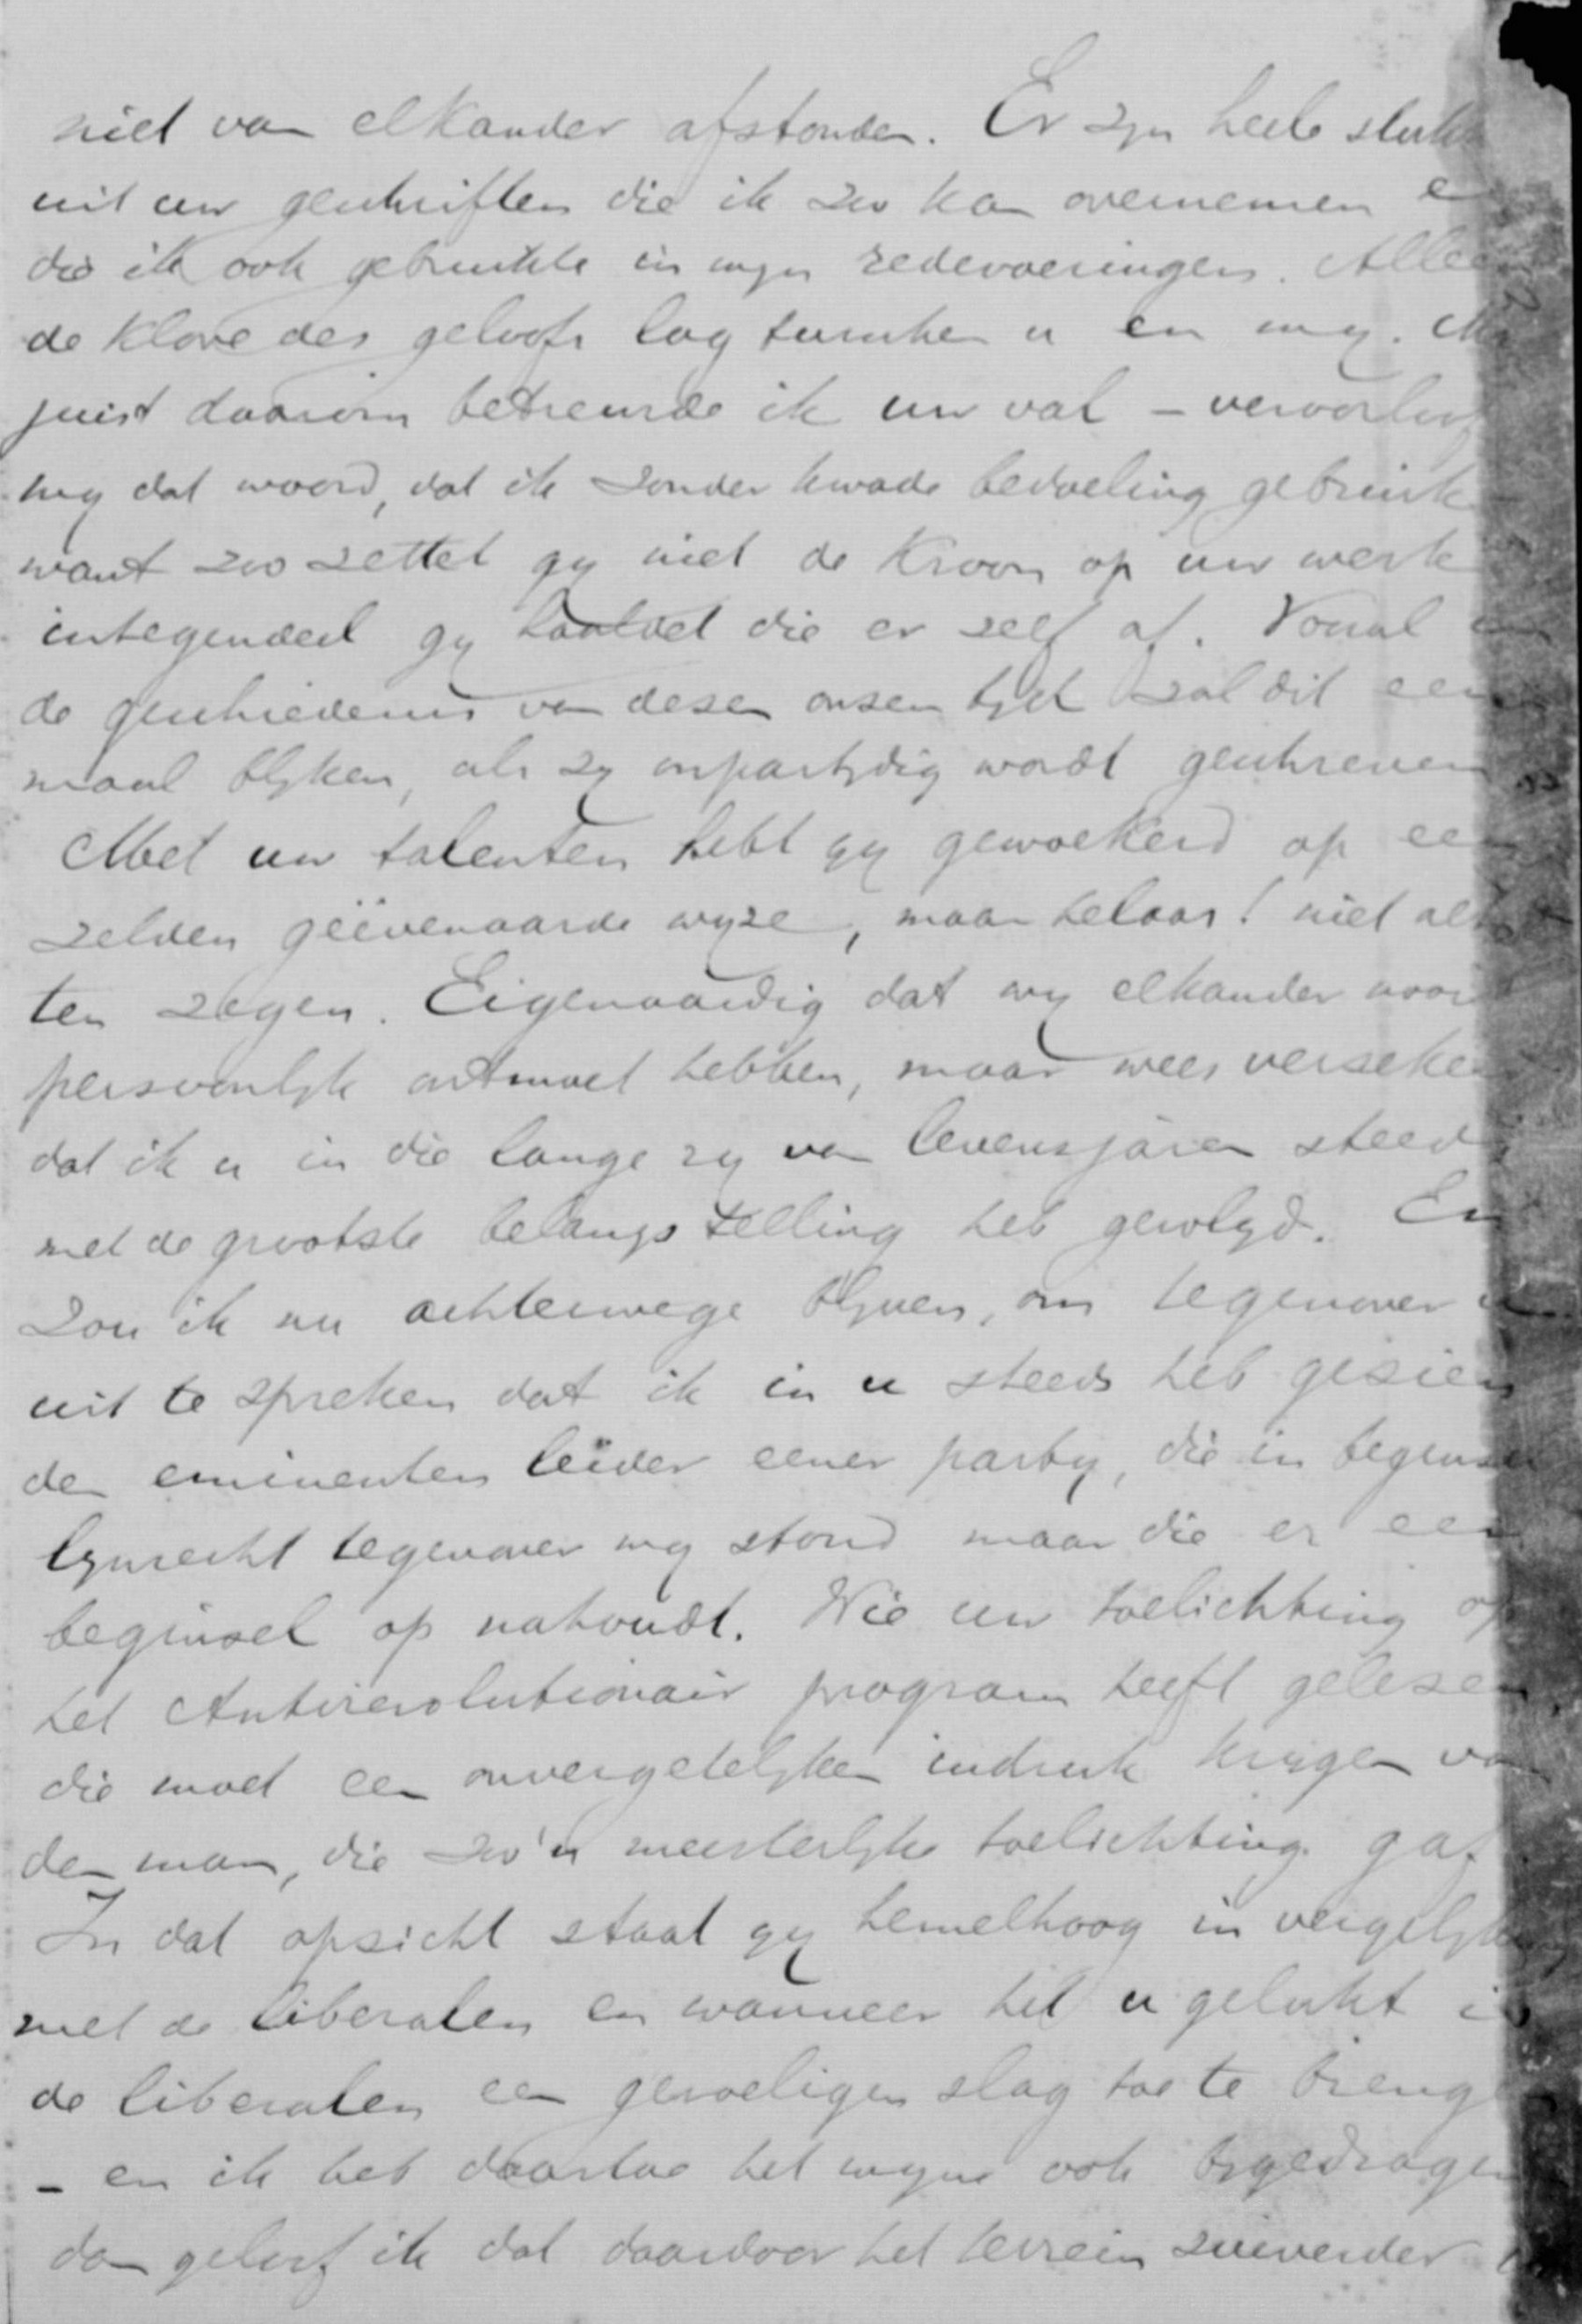 niet van elkander afstonden. Er zyn heele stukk
uit uw geschriften die ik zoo kan overnemen e
die ik ook gebruikte in myn redevoeringen. Allee
de klove des geloofs lag tusschen u en my. Ma
juist daarom betreurde ik uw val – veroorloof
my dat woord, dat ik zonder kwade bedoeling gebruik
want zoo zettet gy niet de kroon op uw werk
integendeel gy haaldet die er zelf af. Vooral in
de geschiedenis van dezen onzen tyd zal dit een
maal blyken, als zy onpartydig wordt geschreven
Met uw talenten hebt gy gewoekerd op een
zelden geëvenaarde wyze, maar helaas! niet alt
ten zegen. Eigenaardig dat wy elkander nooit
persoonlyk ontmoet hebben, maar wees verzeker
dat ik u in die lange ry van levensjaren steeds
met de grootste belangstelling heb gevolgd. En
zou ik nu achterwege blyven, om tegenover u
uit te spreken dat ik in u steeds heb gezien
den eminenten leider eener party, die in beginsel
lynrecht tegenover my stond maar die er een
beginsel op nahoudt. Wie uw toelichting op
het Antirevolutionair program heeft gelezen
die moet een onvergetelyken indruk krygen van
den man, die zoo'n meesterlyke toelichting gaf
In dat opzicht staat gy hemelhoog in vergelyk
met de liberalen en wanneer het u gelukt is
de liberalen een gevoeligen slag toe te breng
– en ik heb daartoe het myne ook bygedragen
dan geloof ik dat daardoor het terrein zuiverder